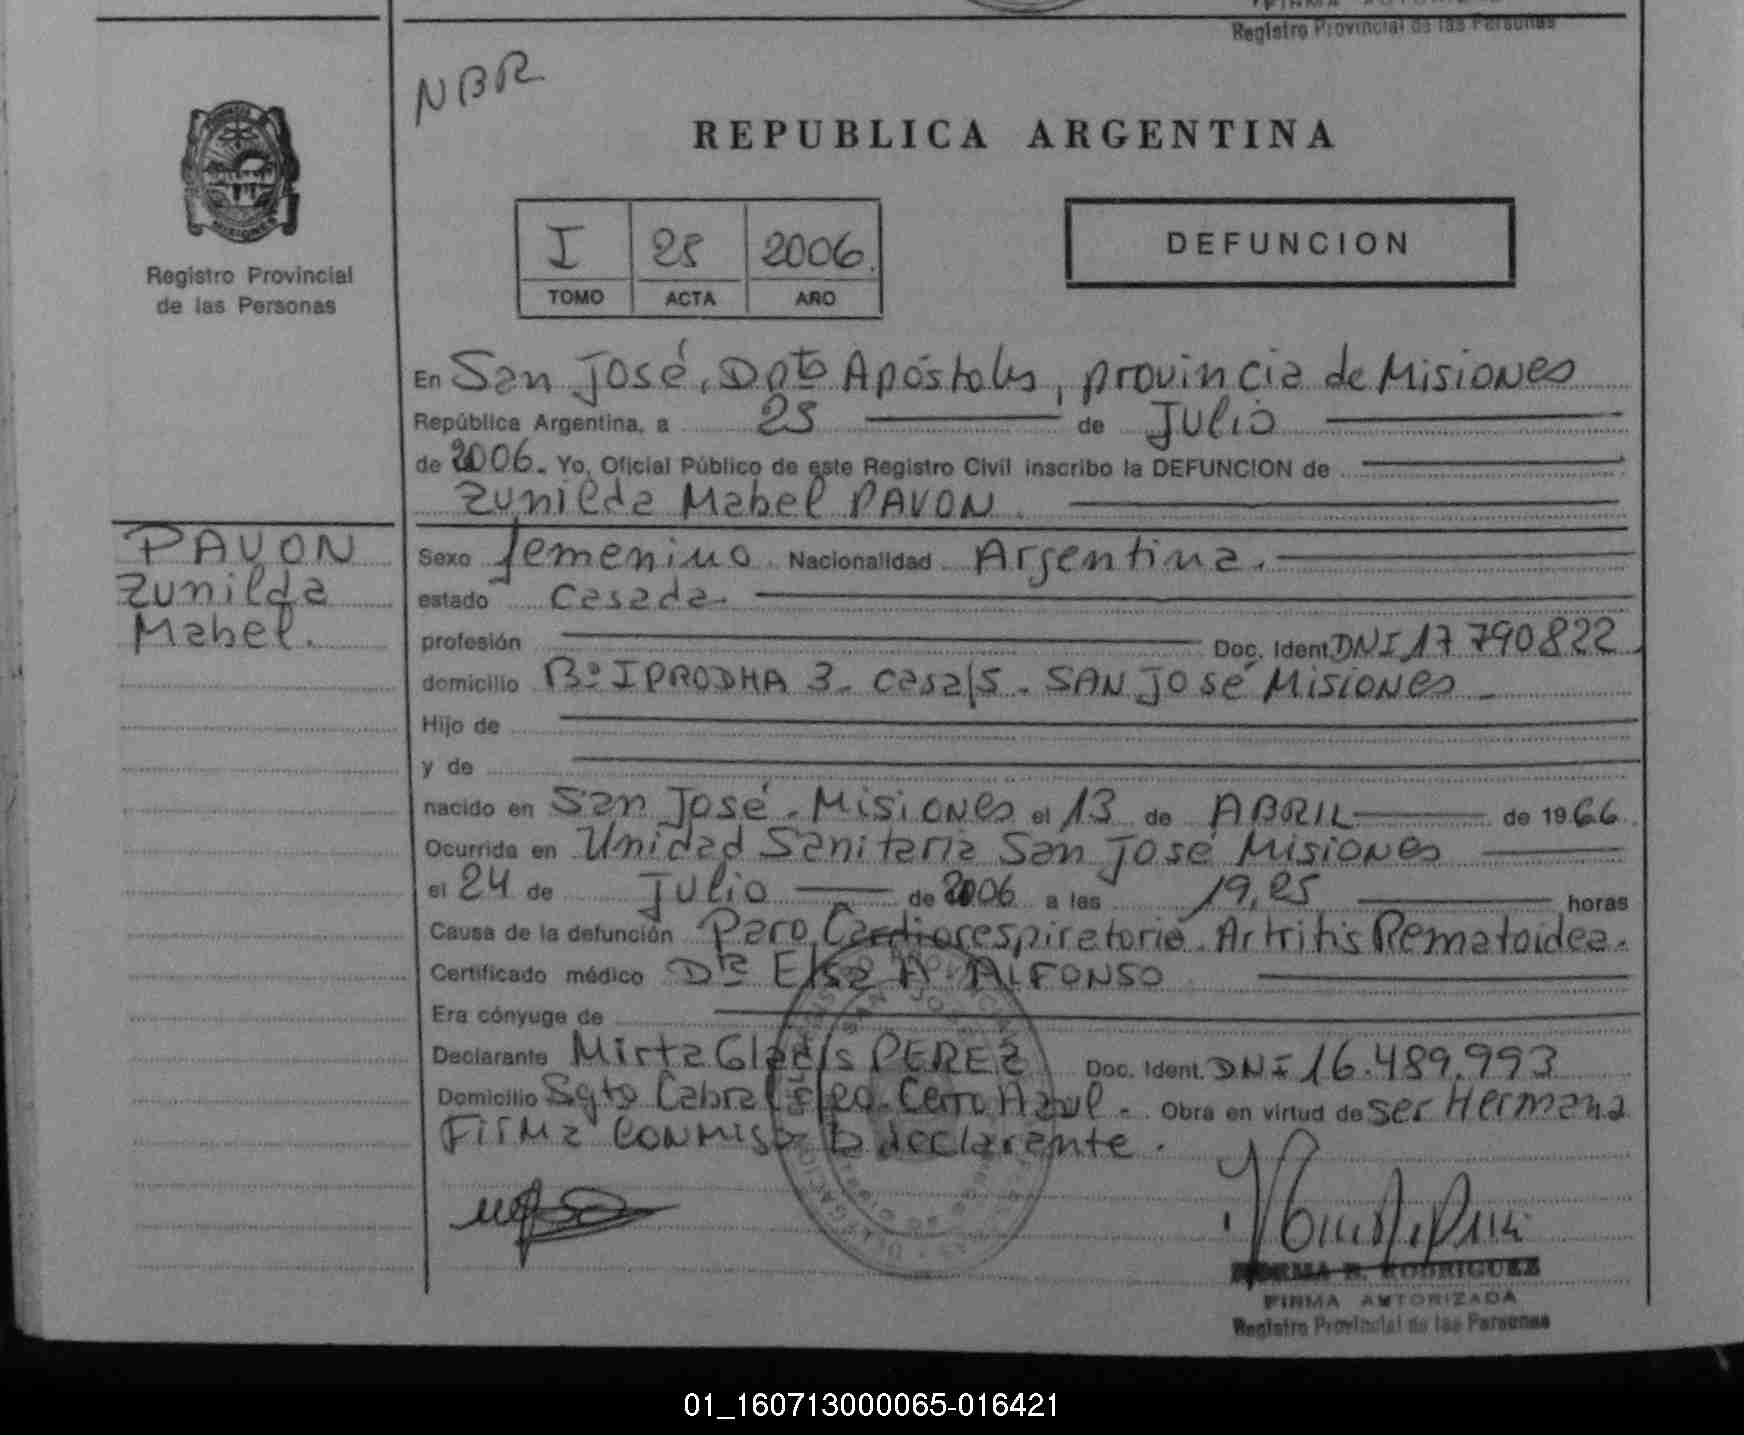 Registro Provincial de las Personas
NBR
REPUBLICA ARGENTINA
MISIONES
Registro Provincial
de las Personas
I 25 2006.
TOMO ACTA AÑO
DEFUNCION
En San José, Dpto Apóstoles, provincia de Misiones
República Argentina, a 25 de Julio
de 2006. Yo, Oficial Público de este Registro Civil inscribo la DEFUNCION de
Zunilda Mabel PAVON.
PAVON
Zunilda
Mabel.
Sexo femenino. Nacionalidad Argentina.
estado Casada.
profesión Doc. Ident. DNI 17 790822
domicilio Bº IPRODHA 3. casa 15. SAN José Misiones
Hijo de
y de
nacido en San José. Misiones el 13 de ABRIL de 1966.
Ocurrida en Unidad Sanitaria San José Misiones
el 24 de Julio de 2006 a las 19,25 horas
Causa de la defunción Paro Cardiorespiratorio. Artritis Rematoidea.
Certificado médico Dra Elsa A ALFONSO
Era cónyuge de
Declarante Mirta Gladis PEREZ Doc. Ident. DNI 16.489.993
Domicilio Sgto Cabral Cerro Azul. Obra en virtud de ser Hermana
Firma conmigo la declarante.
NORMA B. RODRIGUEZ
FIRMA AUTORIZADA
Registro Provincial de las Personas
01_160713000065-016421